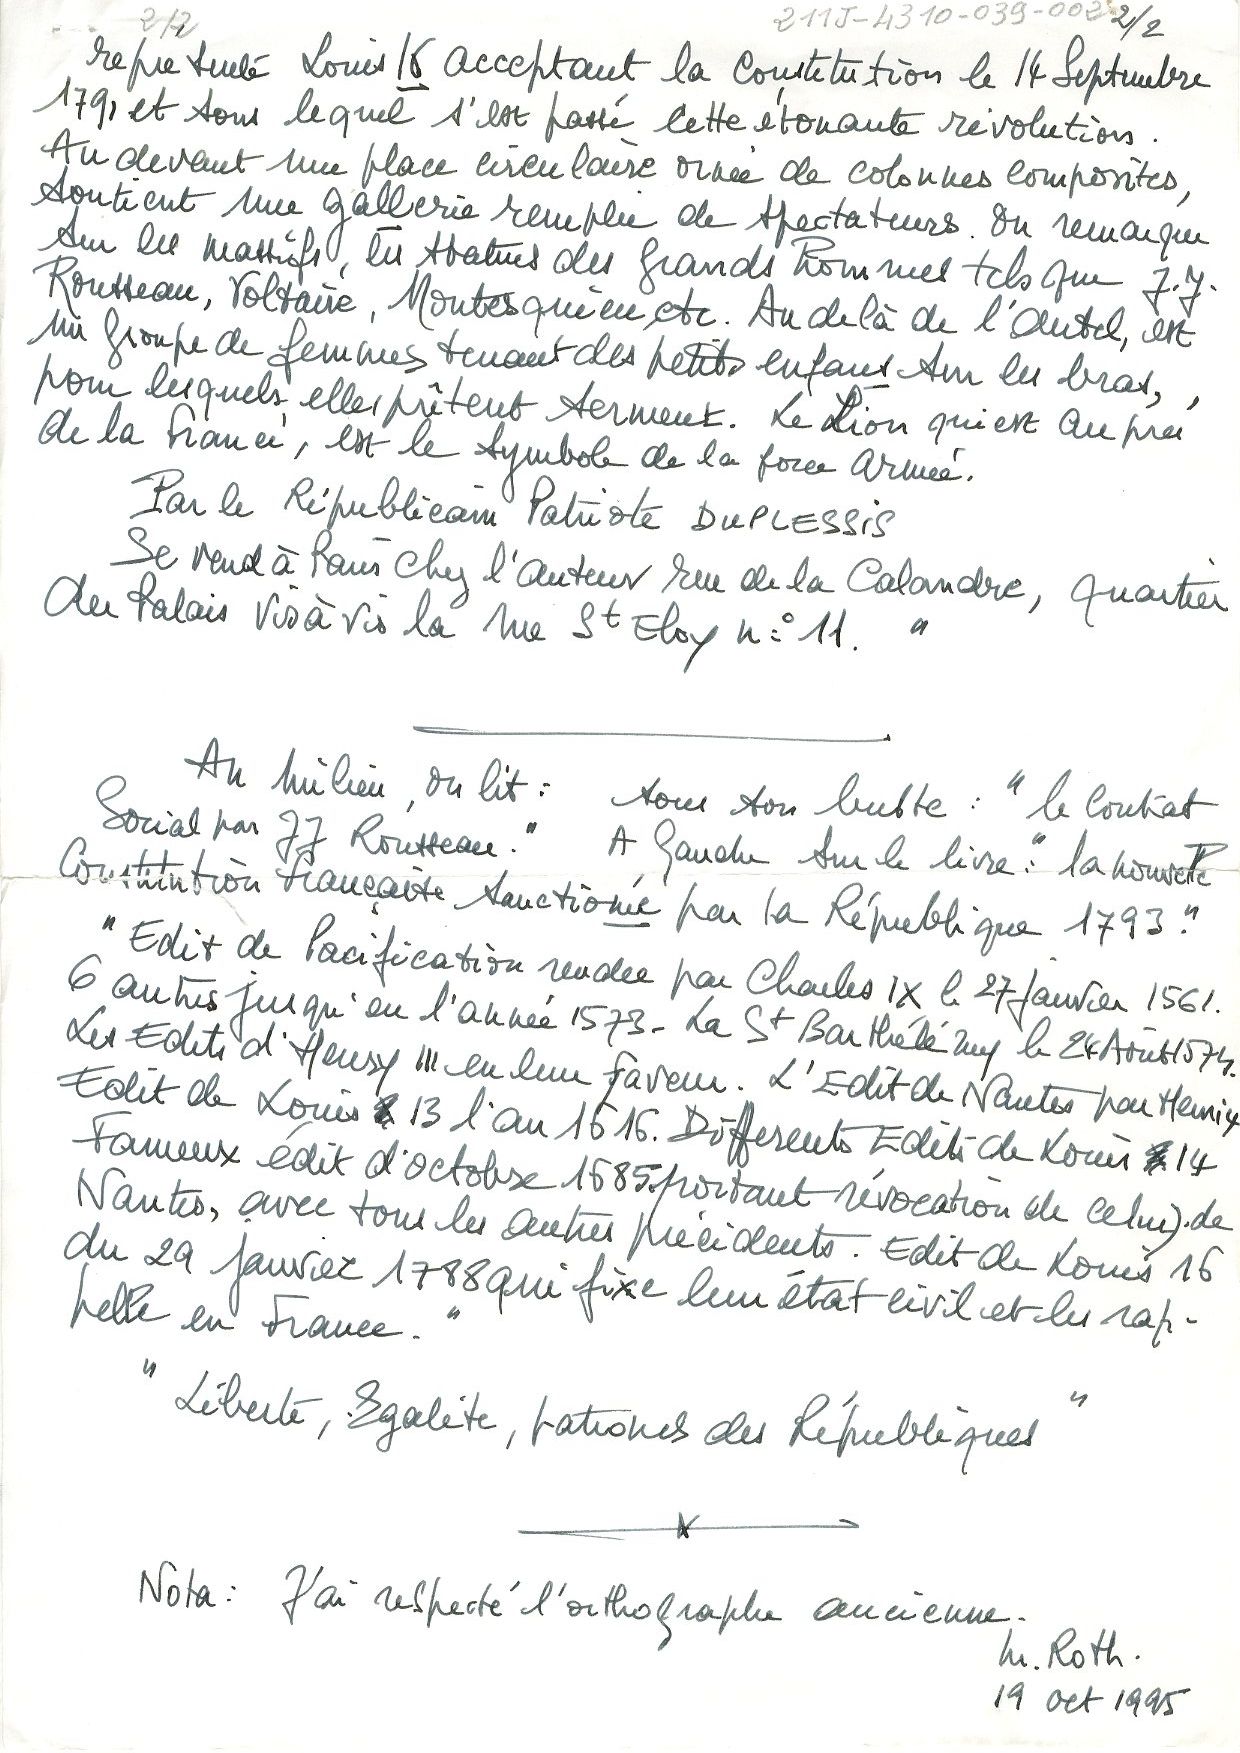 2/2
211J-4310-039-002 2/2
représenté Louis 16 acceptant la Constitution le 14 Septembre
1791 et sous lequel s'est passé cette étonante révolution.
Au devant une place circulaire ornée de colonnes composites,
soutient une gallerie remplie de spectateurs. On remarque
sur les massifs, les statues des grands hommes tels que J.J.
Rousseau, Voltaire, Montesquieu, etc. Au delà de l'autel, est
un groupe de femmes tenant des petits enfans sur les bras,
pour lesquels elles prêtent serment. Le Lion qui est au pied
de la france, est le symbole de la force armée.
Par le Républicain Patriote DUPLESSIS
Se vend à Paris chez l'auteur rue de la Calandre, quartier
du Palais vis à vis la rue St Eloy n° 11. "
Au milieu, on lit : sous son buste : " le Contrat
Social par JJ Rousseau." A gauche sur le livre : " la nouvelle
Constitution française sanctionée par la République 1793."
" Edit de Pacification rendu par Charles IX le 27 janvier 1561.
6 autres jusqu'en l'année 1573 - La St Barthélémy le 24 Août 1574.
Les Edits d'Henry III en leur faveur. L'Edit de Nantes par Henri 4
Edit de Louis 13 l'an 1616. Differents Edits de Louis 14
Fameux édit d'octobre 1685 portant révocation de celui de
Nantes, avec tous les autres précédents. Edit de Louis 16
du 29 janvier 1788 qui fixe leur état civil et les rap-
pelle en France. "
" Liberté, Egalité, patrones des Républiques "
Nota : J'ai respecté l'orthographe ancienne.
M. Roth.
19 oct 1995